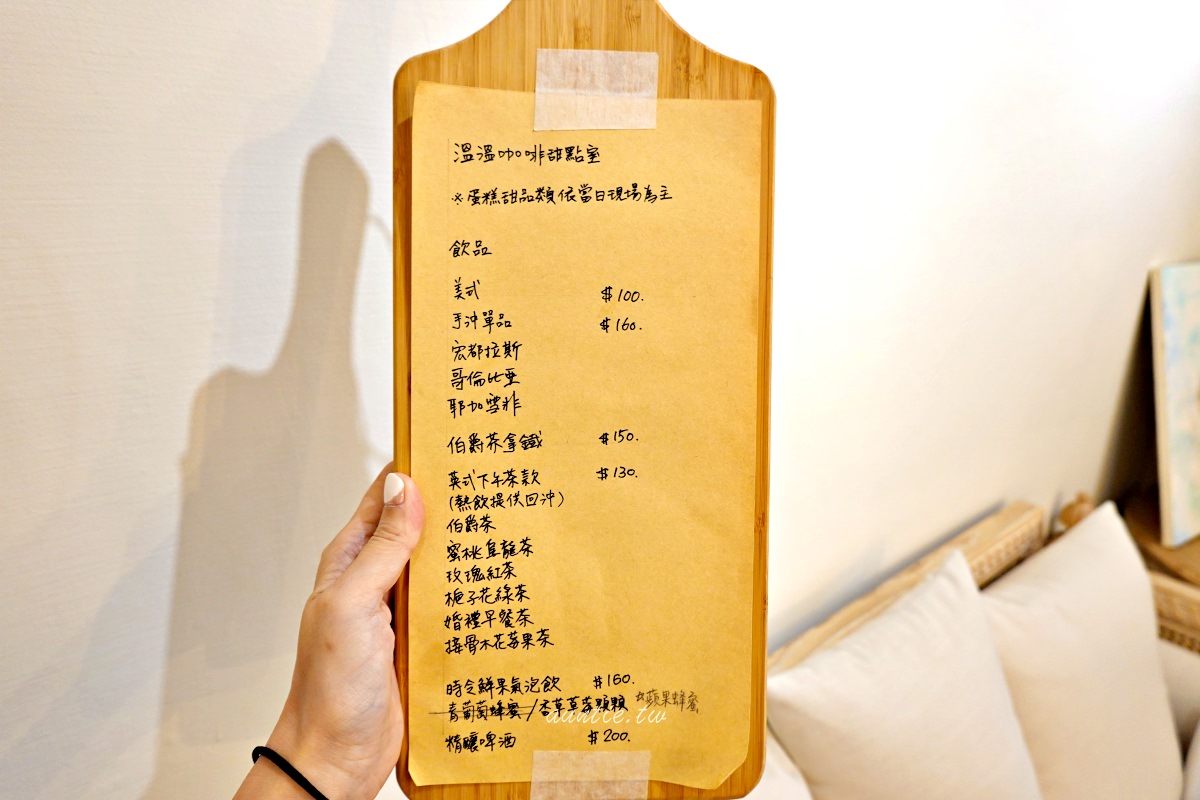 溫溫咖啡甜點室
※蛋糕甜品類依當日現場為主
飲品
美式 $100.
手沖單品 $160.
宏都拉斯
哥倫比亞
耶加雪菲
伯爵茶拿鐵 $150.
英式下午茶款 $130.
(熱飲提供回沖)
伯爵茶
蜜桃烏龍茶
玫瑰紅茶
梔子花綠茶
婚禮早餐茶
接骨木花莓果茶
時令鮮果氣泡飲 $160.
青葡萄蜂蜜/香草草莓顆顆 ☆蘋果蜂蜜
精釀啤酒 $200.